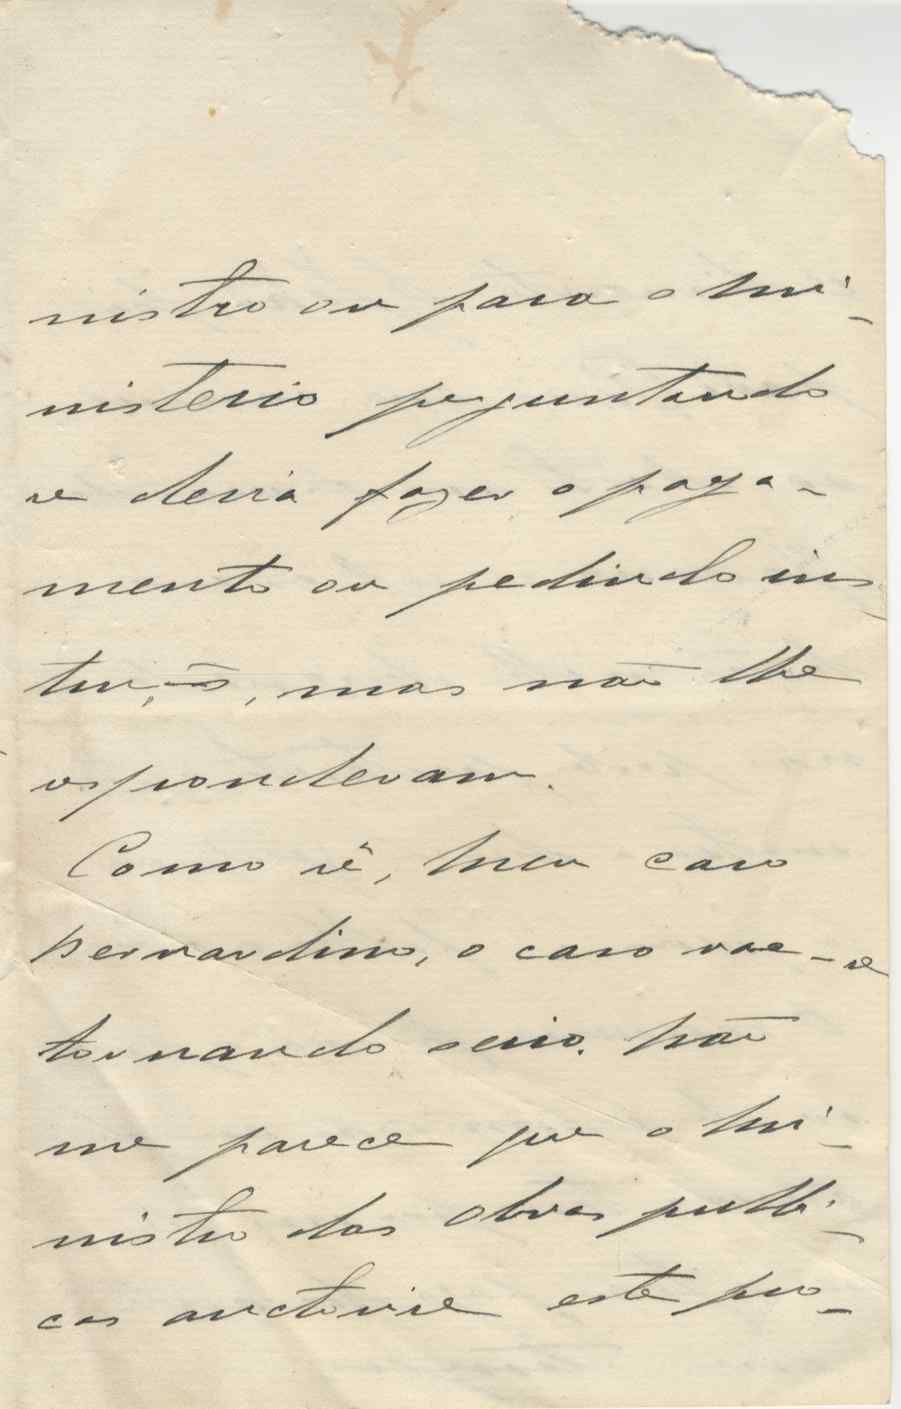 nistro ou para o Mi-
nisterio perguntando
se devia fazer o paga-
mento ou pedindo ins
trucções, mas não lhe
respondevam.
Como vê, meu caro
Bernardino, o caso vae-se
tornando serio. Não
me parece que o Mi-
nistro das Obras publi-
cas auctorise este pro-